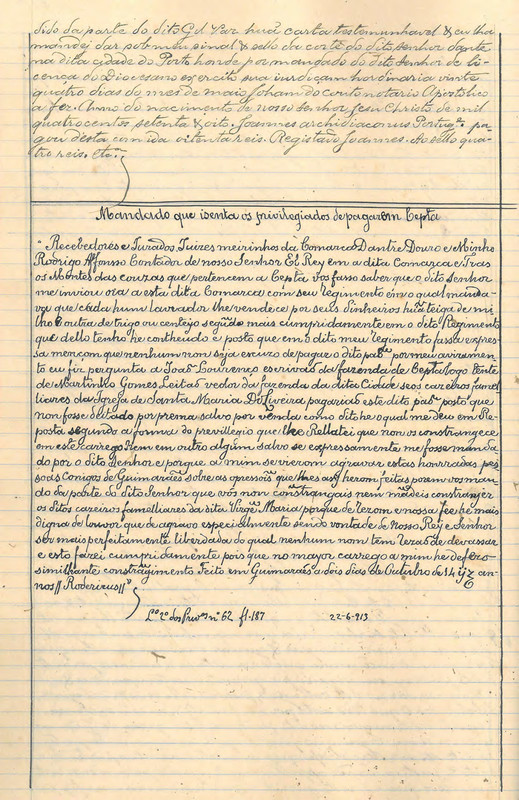 dido da parte do dito Gil Vaz huã carta testemunhavel & eu lha
mandei dar sob meu sinal & sello da corte do dito senhor dante
na dita cidade do Porto honde por mandado do dito Senhor de li-
cença do Diocesano exercito sua jurdiçam hordinaria vinte
quatro dias do mes de maio Joham do couto notario Apostolico
a fez. Anno do nacimento de nosso Senhor Jesu Christo de mil
quatrocentos setenta & oito. Joannes archidiaconus Portugª. pa-
gou desta com ida oitenta reis. Registado Joannes. Ao sello qua-
tro reis. etc.
Mandado que isenta os privilegiados de pagarem Cepta
"Recebedores e Jurados, Juizes meirinhos da Comarca Dantre Douro e Minho
Rodrigo Affonso Contador de nosso Senhor El Rey em a dita Comarca e Tras
os Montes das couzas que pertencem a Cepta vos fasso saber que o dito Senhor
me inviou ora a esta dita Comarca com seu regimento em o qual manda-
va que cada hum lavrador lhe vendece por seus dinheiros huã teiga de mi-
lho e outra de trigo ou centejo segũdo mais cumpridamente em o dito Regimento
que dello tenho he contheudo e posto que em o dito meu regimento fassa expres-
sa mençom que nenhum nom seja escuzo de pagar o dito pam por meu arrimamen-
to eu fiz pergunta a Joaõ Lourenço escrivaõ da fazenda de Cepta logo tente
de Martinho Gomes Leitaõ vedor da fazenda da dita Cidade se os cazeiros fame-
liares da Igreja de Santa Maria D'Oliveira pagariaõ este dito pam posto que
non fosse deitado por prema salvo por vẽnda como dito he o qual me deu em Re-
posta segundo a forma do previllegio que lhe Rellatei que non os constrangece
em este carrego nem em outro algũm salvo se expressamente me fosse manda-
do por o dito Senhor e porque a mim se vierom agravar estas honrradas pes-
soas Conigos de Guimarães sobre as opressoẽs que lhes assy herom feitas porem vos man-
do da parte do dito Senhor que vós non constrangais nem mãdeis constranjer
os ditos cazeiros famelliares da dita Virgẽ Maria porque de rezom e nossa fee he mais
digna de louvor que de agravo especialmente sendo vontade de Nosso Rey e Senhor
ser mais perfeitamente liberdada do qual nenhum nom tem rezaõ de devassar
e esto farei cumpridamente pois que no mayor carrego a mim he defezo
similhante constrãgimento Feito em Guimarães a dois dias de Outubro de 14
nos // Rodericus //"
Lº 2º dos Privºs nº 62 fl. 187 22-6-913